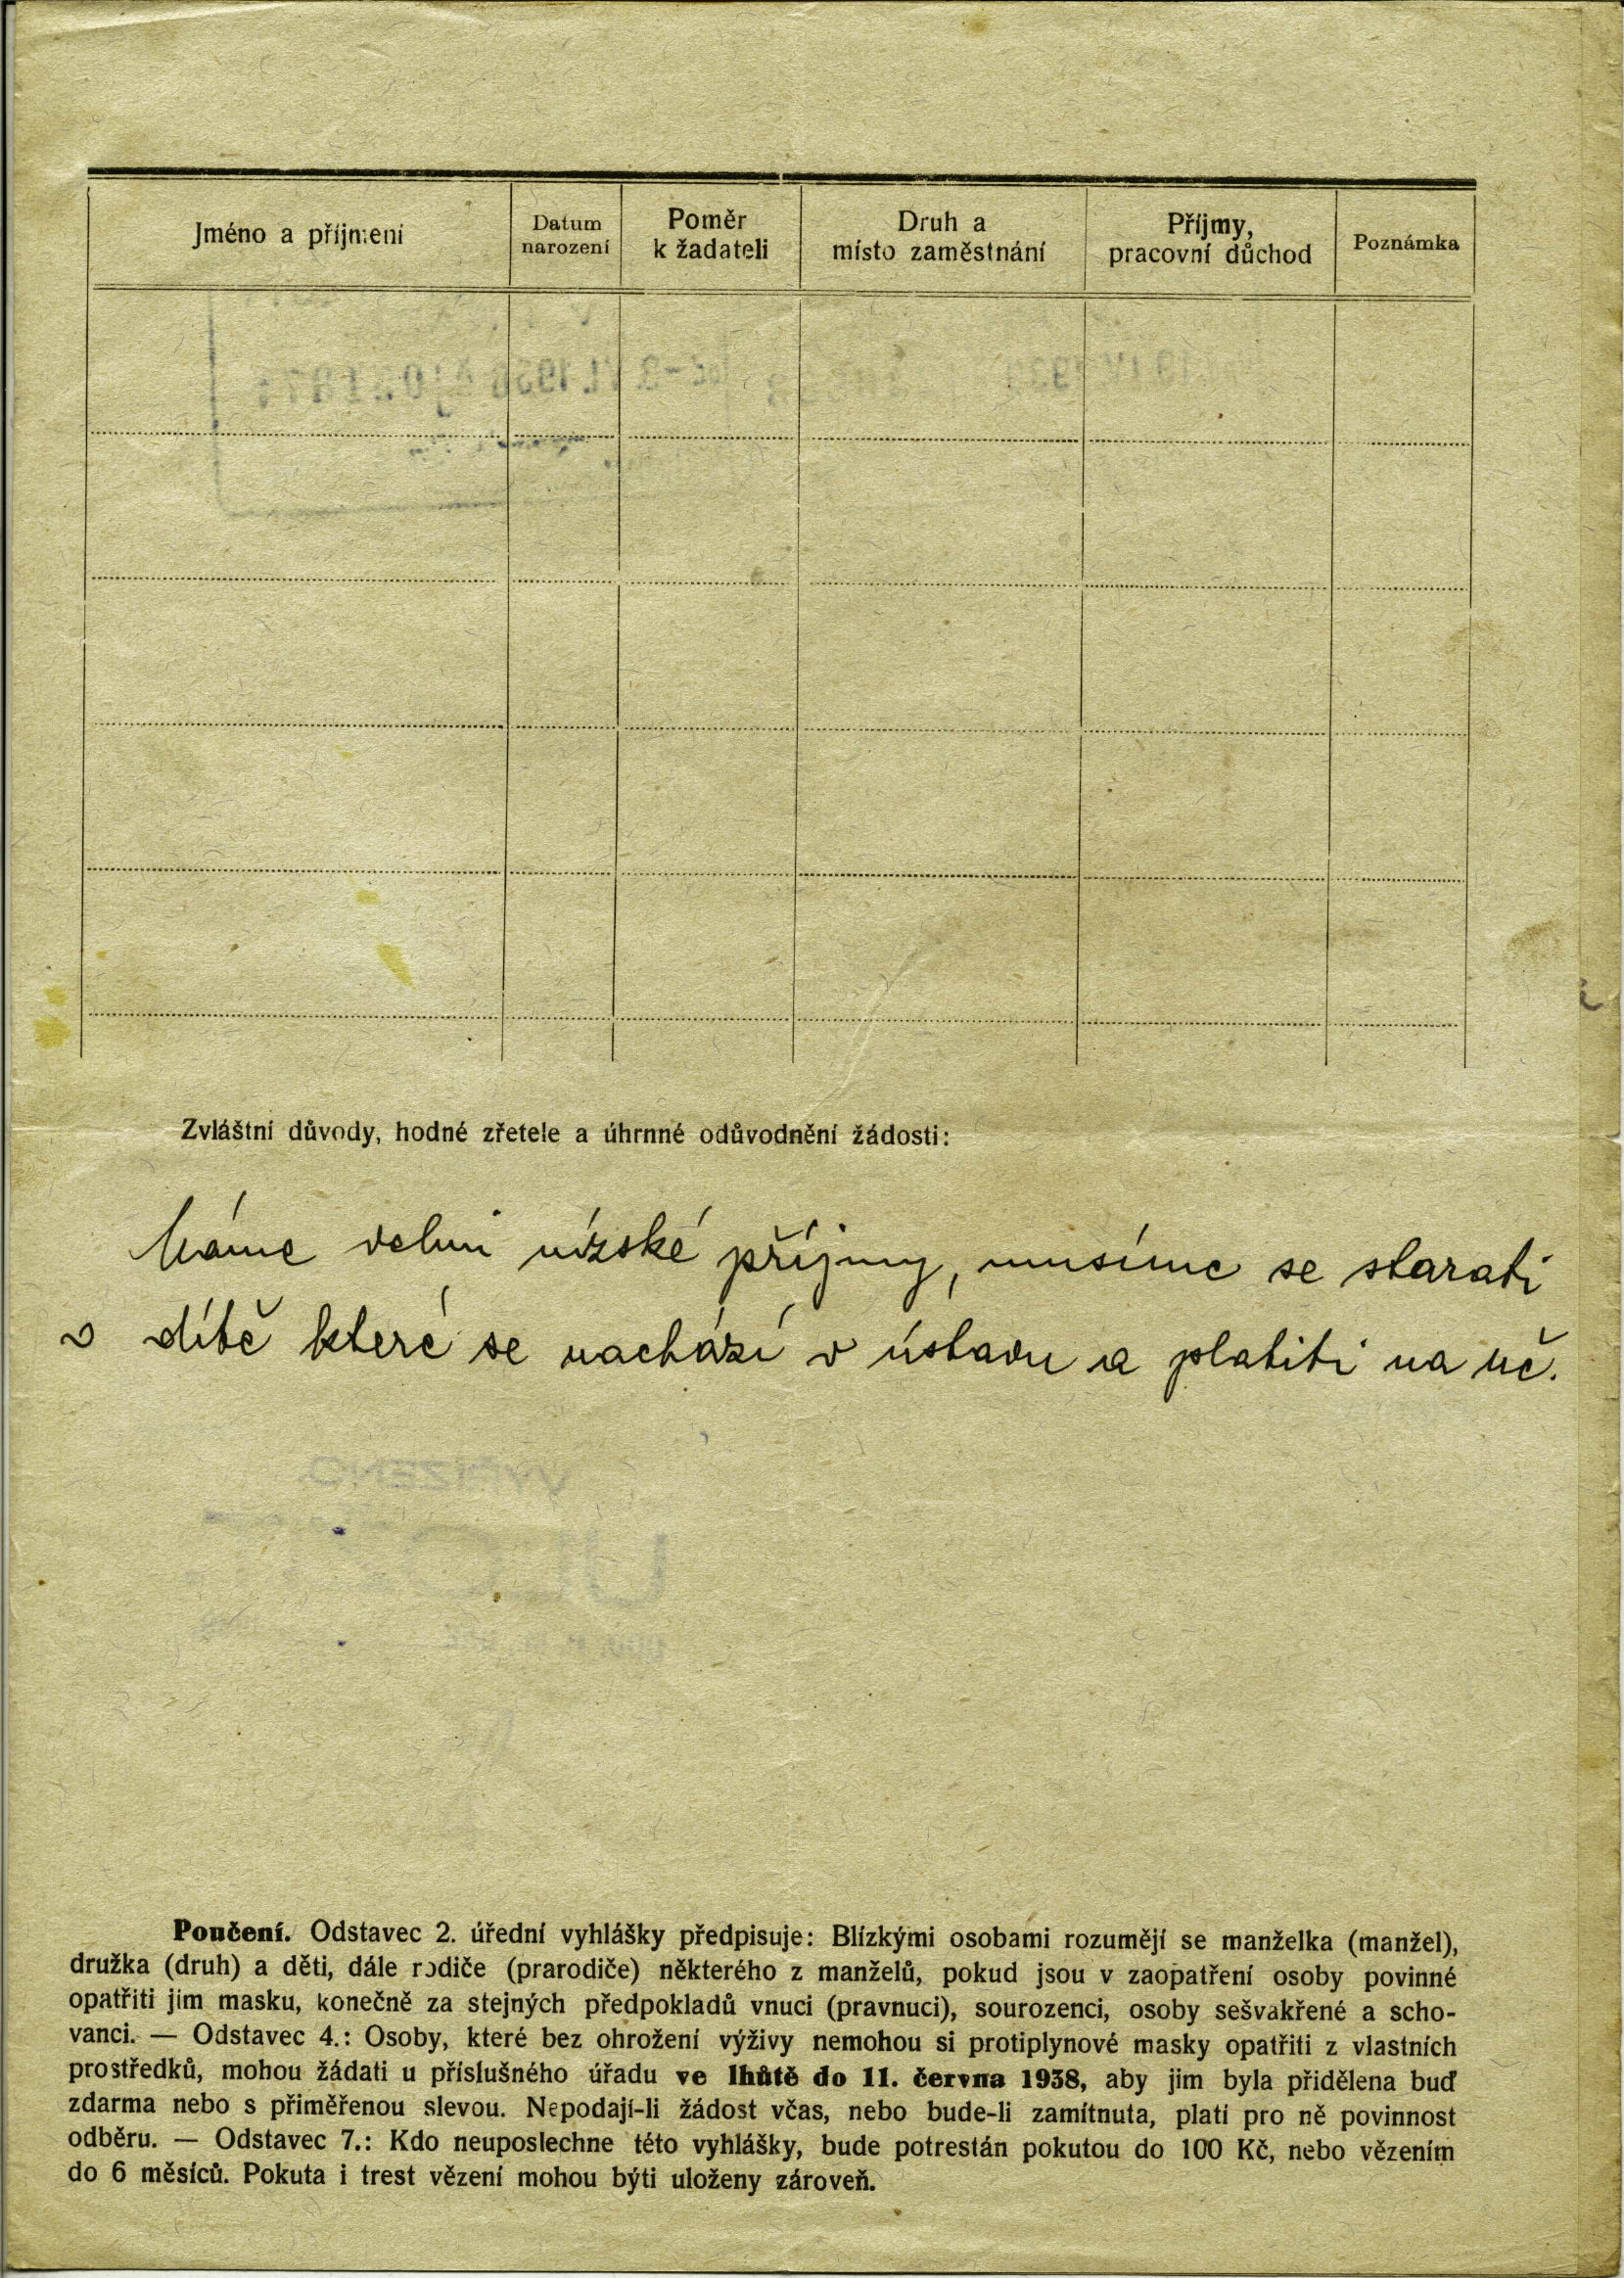 Jméno a příjmení
Datum narození
Poměr k žadateli
Druh a místo zaměstnání
Příjmy, pracovní důchod
Poznámka
Zvláštní důvody, hodné zřetele a úhrnné odůvodnění žádosti:
Máme velmi nízské příjmy, musíme se starati
o dítě které se nachází v ústavu a platiti na ně.
VYŘÍZENO
Poučení. Odstavec 2. úřední vyhlášky předpisuje: Blízkými osobami rozumějí se manželka (manžel),
družka (druh) a děti, dále rodiče (prarodiče) některého z manželů, pokud jsou v zaopatření osoby povinné
opatřiti jim masku, konečně za stejných předpokladů vnuci (pravnuci), sourozenci, osoby sešvakřené a scho-
vanci. — Odstavec 4.: Osoby, které bez ohrožení výživy nemohou si protiplynové masky opatřiti z vlastních
prostředků, mohou žádati u příslušného úřadu ve lhůtě do 11. června 1938, aby jim byla přidělena buď
zdarma nebo s přiměřenou slevou. Nepodají-li žádost včas, nebo bude-li zamítnuta, platí pro ně povinnost
odběru. — Odstavec 7.: Kdo neuposlechne této vyhlášky, bude potrestán pokutou do 100 Kč, nebo vězením
do 6 měsíců. Pokuta i trest vězení mohou býti uloženy zároveň.